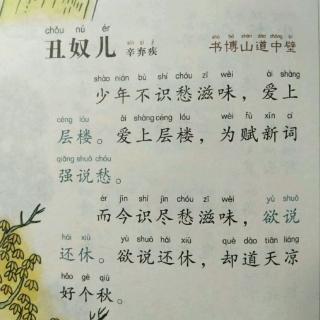 chǒu nú ér
丑奴儿 辛弃疾 书博山道中壁
shào nián bù shí chóu zī wèi ài shàng
少年不识愁滋味，爱上
céng lóu ài shàng céng lóu wèi fù xīn cí
层楼。爱上层楼，为赋新词
qiǎng shuō chóu
强说愁。
ér jīn shí jìn chóu zī wèi yù shuō
而今识尽愁滋味，欲说
hái xiū yù shuō hái xiū què dào tiān liáng
还休。欲说还休，却道天凉
hǎo gè qiū
好个秋。